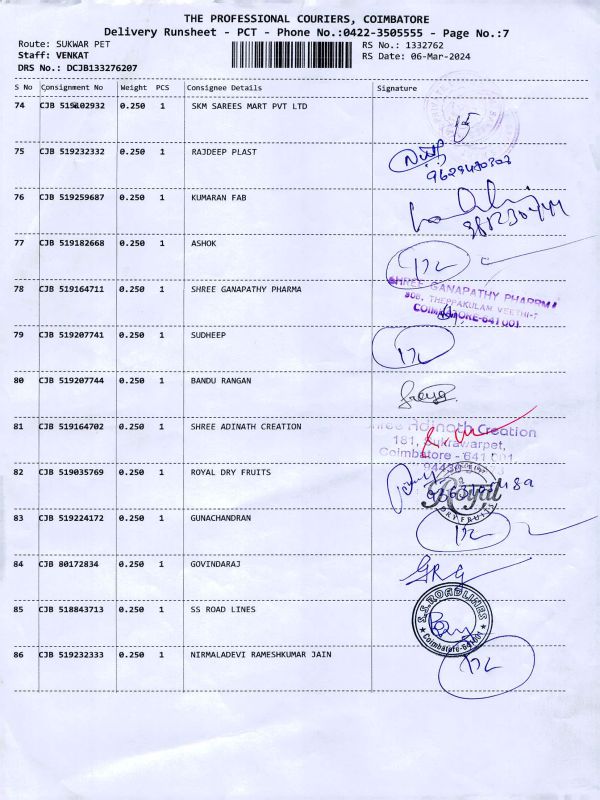 THE PROFESSIONAL COURIERS, COIMBATORE
Delivery Runsheet - PCT - Phone No.:0422-3505555 - Page No.:7
Route: SUKWAR PET
RS No.: 1332762
Staff: VENKAT
RS Date: 06-Mar-2024
DRS No.: DCJB133276207
S No Consignment No Weight PCS Consignee Details Signature
74 CJB 519202932 0.250 1 SKM SAREES MART PVT LTD
75 CJB 519232332 0.250 1 RAJDEEP PLAST
76 CJB 519259687 0.250 1 KUMARAN FAB
77 CJB 519182668 0.250 1 ASHOK
78 CJB 519164711 0.250 1 SHREE GANAPATHY PHARMA
SHREE GANAPATHY PHARMA
THEPPAKULAM VEETHI-7
COIMBATORE-641 001
79 CJB 519207741 0.250 1 SUDHEEP
80 CJB 519207744 0.250 1 BANDU RANGAN
81 CJB 519164702 0.250 1 SHREE ADINATH CREATION
Shree Adinath Creation
181, Sukrawarpet,
Coimbatore - 641 001
94430
82 CJB 519035769 0.250 1 ROYAL DRY FRUITS
Royal
DRY FRUITS
83 CJB 519224172 0.250 1 GUNACHANDRAN
84 CJB 80172834 0.250 1 GOVINDARAJ
85 CJB 518843713 0.250 1 SS ROAD LINES
S.S. ROADLINES
Coimbatore-641001
86 CJB 519232333 0.250 1 NIRMALADEVI RAMESHKUMAR JAIN